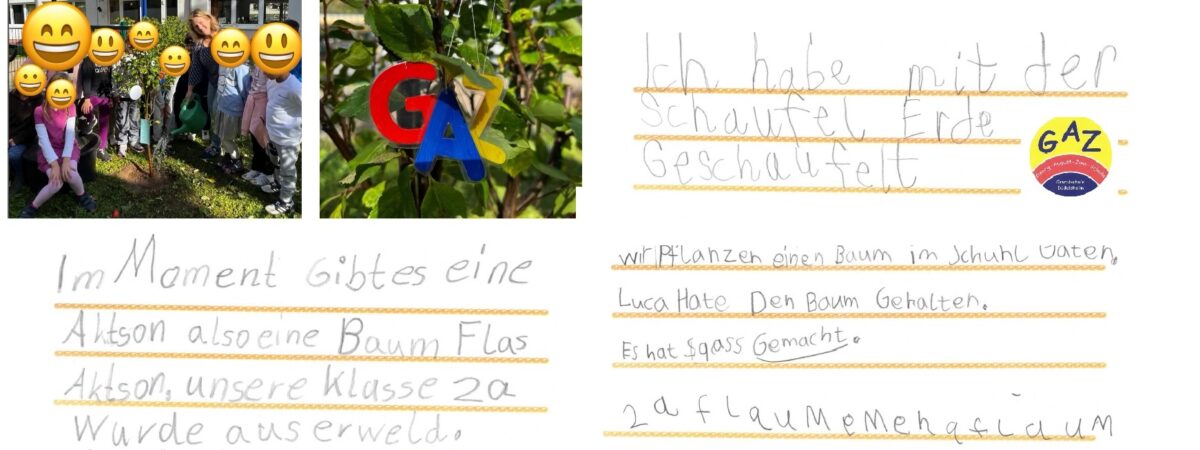 GAZ
Ich habe mit der
Schaufel Erde
Geschaufelt
GAZ
Im Moment Gibtes eine
Aktson also eine Baum Flas
Aktson, unsere Klasse 2a
Wurde aus erweld.
wir Pflanzen einen Baum im Schuhl Gaten.
Luca Hate Den Baum Gehalten.
Es hat Spass Gemacht.
2a